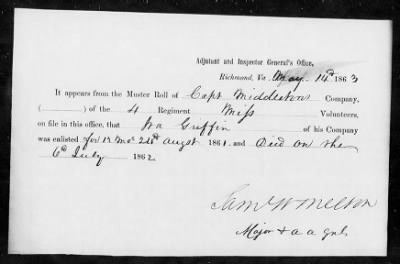 Adjutant and Inspector General's Office,
Richmond, Va. May 14th 1863
It appears from the Muster Roll of Capt Middleton's Company,
( ) of the 4 Regiment Miss Volunteers,
on file in this office, that Ira Griffin of his Company
was enlisted for 12 Mos 24th Augst 1861. and Died on the
6th July 1862.
Saml W Melton
Major & a a genl